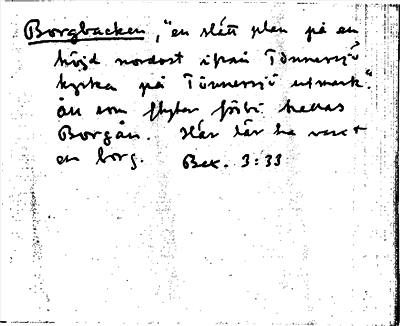 Borgbacken, "en slätt plan på en
höjd nordost ifrån Tönnersjö
kyrka på Tönnersjö utmark".
ån som flyter förbi kallas
Borgån. Här lär ha varit
en borg. Bex. 3:33